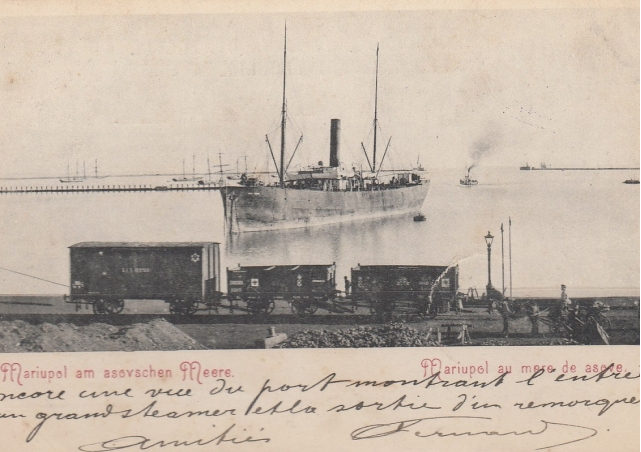 Mariupol am asovschen Meere. Mariupol au mere de asove.
encore une vue du port montrant l'entré
un grand steamer et la sortie d'un remorque
Amitiés Fernand